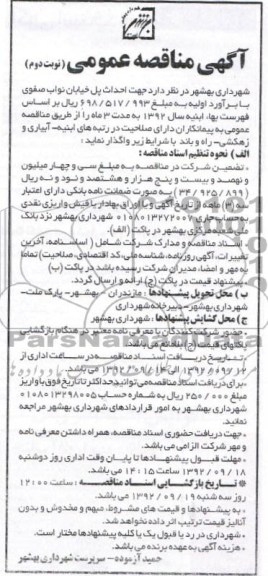 آگهی مناقصه عمومی (نوبت دوم)
شهرداری بهشهر در نظر دارد جهت احداث پل خیابان نواب صفوی
با برآورد اولیه به مبلغ ۶۹۸/۵۱۷/۹۹۳ ریال بر اساس
فهرست بها، ابنیه سال ۱۳۹۲ به مدت ۳ ماه را از طریق مناقصه
عمومی به پیمانکاران دارای صلاحیت در رتبه های ابنیه- آبیاری و
زهکشی- راه و باند با شرایط زیر واگذار نماید:
الف) نحوه تنظیم اسناد مناقصه:
- تضمین شرکت در مناقصه به مبلغ سی و چهار میلیون
و نهصد و بیست و پنج هزار و هشتصد و نود و نه ریال
(۳۴/۹۲۵/۸۹۹) به صورت ضمانت نامه بانکی دارای اعتبار
ماهه از تاریخ آگهی و یا اوراق بهادار یا فیش واریزی نقدی
به حساب جاری ۰۱۰۸۰۱۳۲۷۲۰۰۷ شهرداری بهشهر نزد بانک
ملی شعبه مرکزی بهشهر در پاکت (الف).
- اسناد مناقصه و مدارک شرکت شامل (اساسنامه، آخرین
تغییرات، آگهی روزنامه، شناسه ملی، کد اقتصادی، صلاحیت) تماماً
به مهر و امضاء مدیران شرکت رسیده باشد در پاکت (ب)
- پیشنهاد قیمت در پاکت (ج) ارائه و ارسال گردد.
ب) محل تحویل پیشنهادها: مازندران- بهشهر- پارک ملت-
شهرداری بهشهر- دبیرخانه شهرداری
ج) محل گشایش پیشنهادها: شهرداری بهشهر
- حضور شرکت کنندگان با معرفی نامه معتبر در هنگام بازگشایی
پاکتهای قیمت (ج) بلامانع می باشد.
- تاریخ دریافت اسناد مناقصه در ساعات اداری از
۱۳۹۲/۰۹/۱۲ الی ۱۳۹۲/۰۹/۱۴ می باشد.
- برای دریافت اسناد مناقصه می توانید حداکثر تا تاریخ فوق با واریز
مبلغ ۲۵۰/۰۰۰ ریال به شماره حساب ۰۱۰۸۰۱۳۲۹۸۰۰۵
شهرداری بهشهر به امور قراردادهای شهرداری بهشهر مراجعه
نمائید.
- جهت دریافت حضوری اسناد مناقصه، همراه داشتن معرفی نامه
و مهر شرکت الزامی می باشد.
- مهلت قبول پیشنهادها تا پایان وقت اداری روز دوشنبه
۱۳۹۲/۰۹/۱۸ ساعت ۱۴:۱۵ می باشد.
* تاریخ بازگشایی اسناد مناقصه: ساعت ۱۲:۰۰
روز سه شنبه ۱۳۹۲/۰۹/۱۹ می باشد.
- به پیشنهادها و قیمت های مشروط، مبهم و مخدوش و بدون
آنالیز قیمت ترتیب اثر داده نخواهد شد.
- شهرداری در رد یا قبول یک یا کلیه پیشنهادها مختار است.
- هزینه آگهی به عهده برنده می باشد.
حمید آزموده- سرپرست شهرداری بهشهر